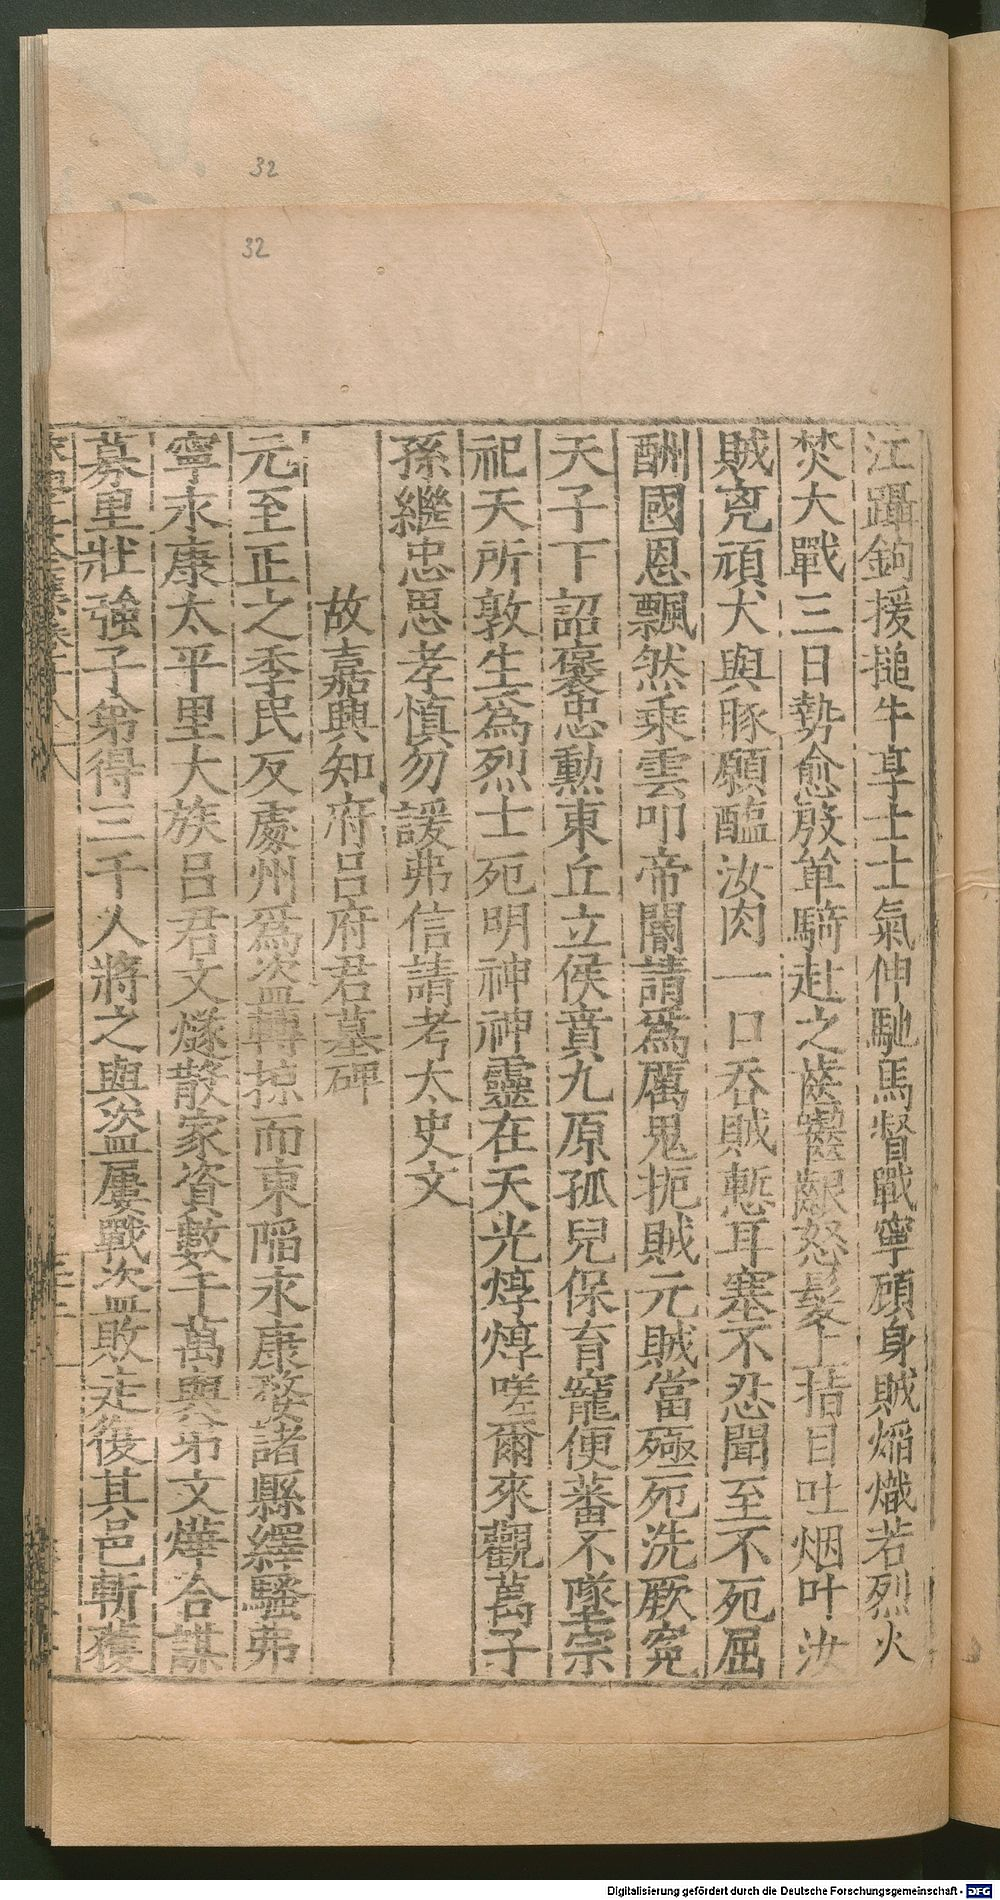 32
32
江躡鉤援搥牛享士士氣伸馳馬督戰寧顧身賊熖熾若烈火
焚大戰三日勢愈殷單騎赴之茲齾齦怒髮上指目吐烟叶汝
賊兇頑犬與豚願醢汝肉一口吞賊慙耳塞不忍聞至不死屈
酬國恩飄然乘雲叩帝閽請爲厲鬼扼賊元賊當殛死洗厥寃
天子下詔褒忠勳東丘立侯賁九原孤兒保育寵便蕃不墜宗
祀天所敦生爲烈士死明神神靈在天光焞焞嗟爾來觀萬子
孫繼忠思孝慎勿諼弗信請考太史文
故嘉興知府呂府君墓碑
元至正之季民反處州爲盗轉掠而東陷永康婺諸縣繹騷弗
寧永康太平里大族呂君文燧散家資數千萬與弟文燁合謀
募里壯強子弟得三千人將之與盗屢戰盗敗走復其邑斬獲
Digitalisierung gefördert durch die Deutsche Forschungsgemeinschaft - DFG